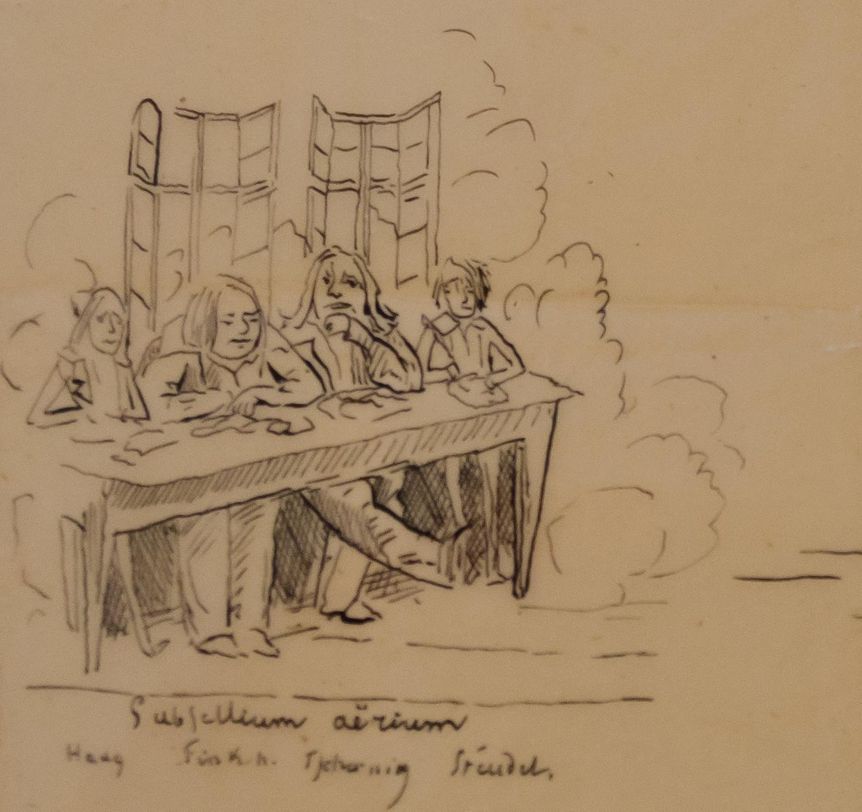 Subſellium aërium
Haag Finkh. Tſchernig Steudel.